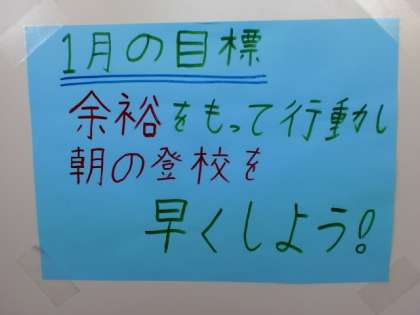 1月の目標
余裕をもって行動し
朝の登校を
早くしよう!